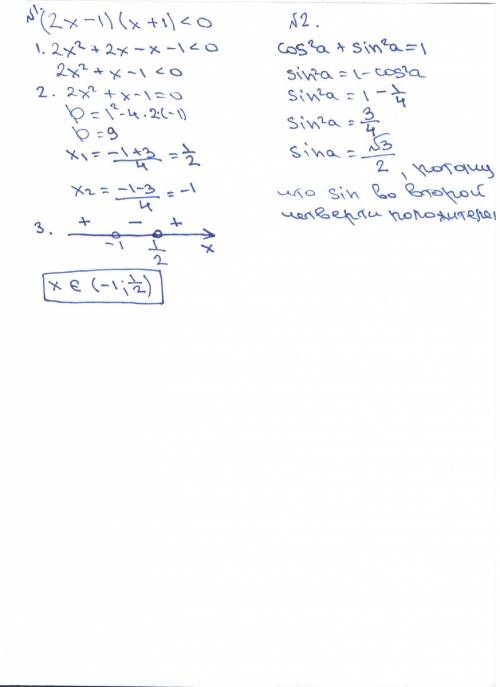 №1. (2x-1)(x+1)<0
1. 2x²+2x-x-1<0
2x²+x-1<0
2. 2x²+x-1=0
D=1²-4·2·(-1)
D=9
x₁=(-1+3)/4=1/2
x₂=(-1-3)/4=-1
3. + - +
-1 1/2 x
x ∈ (-1; 1/2)
№2.
cos²a+sin²a=1
sin²a=1-cos²a
sin²a=1-1/4
sin²a=3/4
sina=√3/2, потому
что sin во второй
четверти положителен